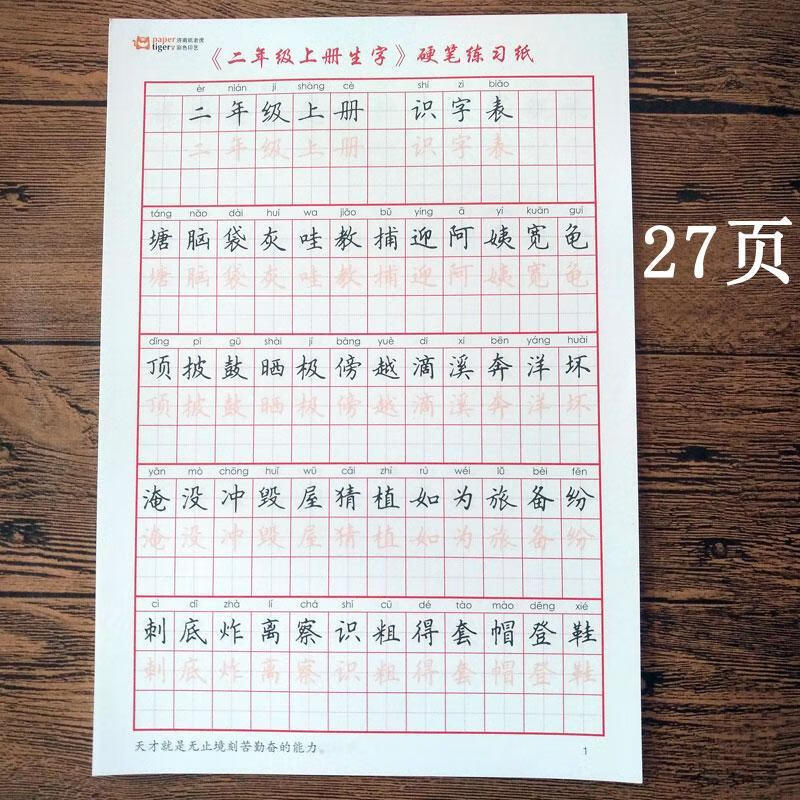 paper 济南纸老虎
tiger 彩色印艺
《二年级上册生字》硬笔练习纸
èr nián jí shàng cè shí zì biǎo
二年级上册 识字表
二年级上册 识字表
táng nǎo dài huī wa jiào bǔ yíng ā yí kuān guī
塘脑袋灰哇教捕迎阿姨宽龟
塘脑袋灰哇教捕迎阿姨宽龟
dǐng pī gǔ shài jí bàng yuè dī xī bēn yáng huài
顶披鼓晒极傍越滴溪奔洋坏
顶披鼓晒极傍越滴溪奔洋坏
yān mò chōng huǐ wū cāi zhí rú wéi lǚ bèi fēn
淹没冲毁屋猜植如为旅备纷
淹没冲毁屋猜植如为旅备纷
cì dǐ zhà lí chá shí cū dé tào mào dēng xié
刺底炸离察识粗得套帽登鞋
刺底炸离察识粗得套帽登鞋
天才就是无止境刻苦勤奋的能力。
1
27页